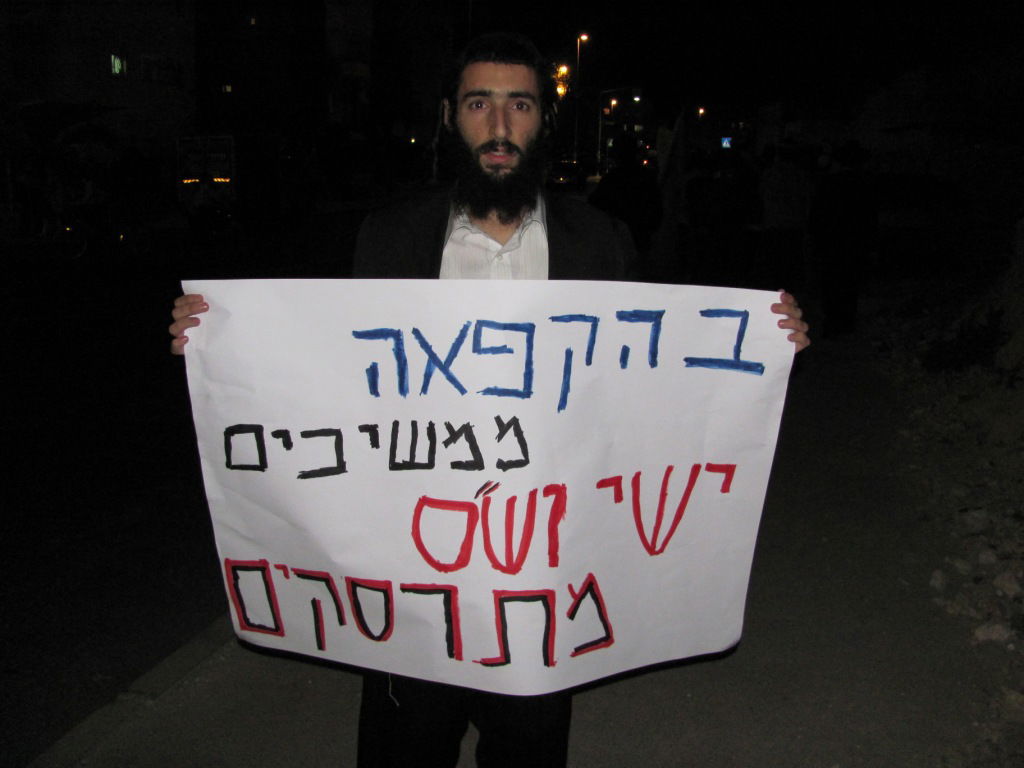 בהקפאה
ממשיכים
ישי וש״ס
מתרסקים